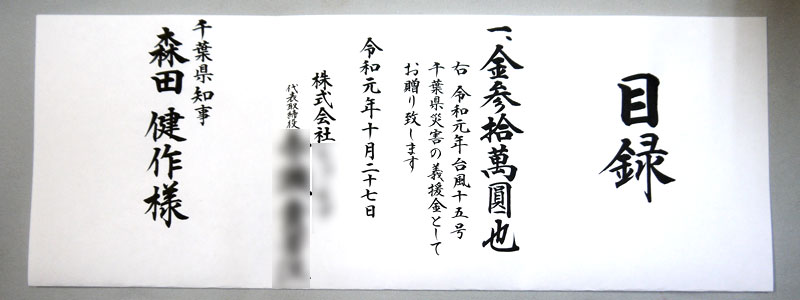 目録
一、金参拾萬圓也
右 令和元年台風十五号
千葉県災害の義援金として
お贈り致します
令和元年十月二十七日
株式会社
代表取締役
千葉県知事
森田 健作様